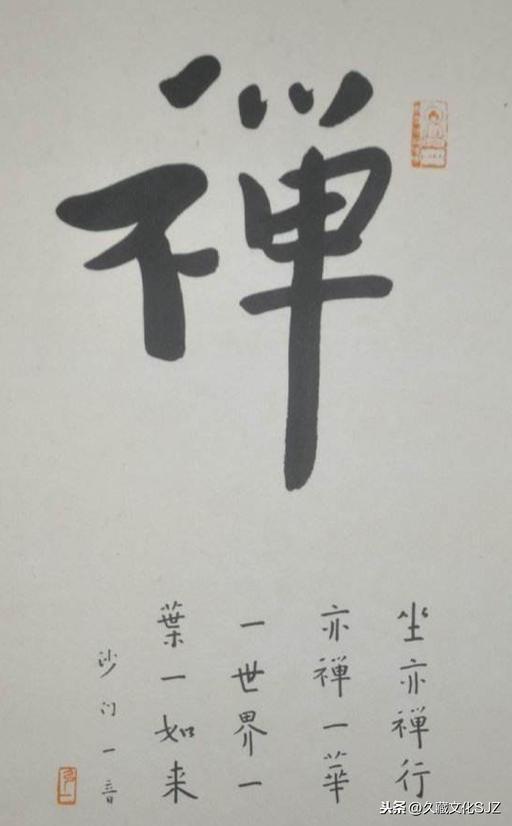 禅
坐亦禅行
亦禅一華
一世界一
葉一如来
沙门一音
头条 @久藏文化SJZ